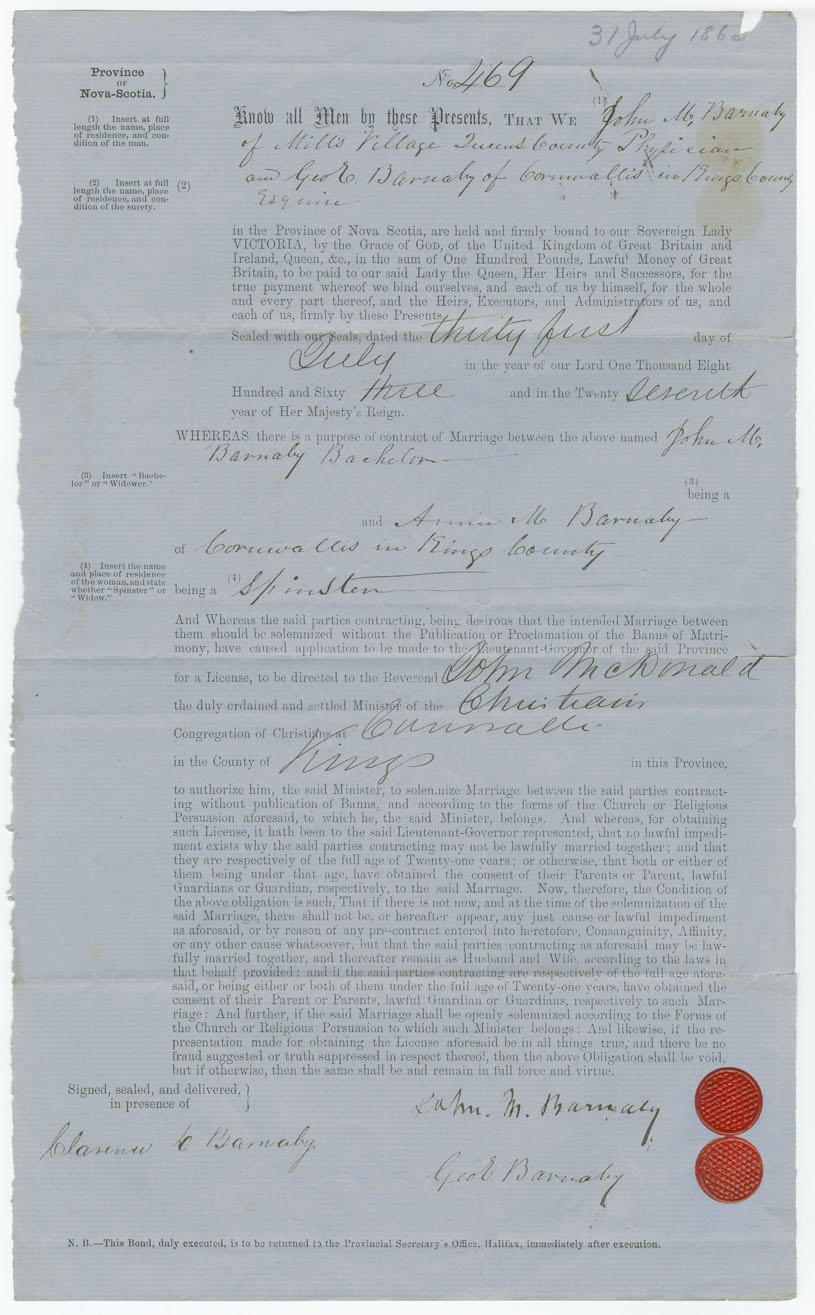 31 July 186
Province
OF
Nova-Scotia.
No. 469
(1) Insert at full
length the name, place
of residence, and con-
dition of the man.
Know all Men by these Presents, THAT WE (1) John M. Barnaby
of Mills Village Queens County Physician
(2) Insert at full
length the name, place
of residence, and con-
dition of the surety.
(2) and Geo E. Barnaby of Cornwallis in Kings County
Esquire
in the Province of Nova Scotia, are held and firmly bound to our Sovereign Lady
VICTORIA, by the Grace of GOD, of the United Kingdom of Great Britain and
Ireland, Queen, &c., in the sum of One Hundred Pounds, Lawful Money of Great
Britain, to be paid to our said Lady the Queen, Her Heirs and Successors, for the
true payment whereof we bind ourselves, and each of us by himself, for the whole
and every part thereof, and the Heirs, Executors, and Administrators of us, and
each of us, firmly by these Presents.
Sealed with our Seals, dated the thirty first day of
July in the year of our Lord One Thousand Eight
Hundred and Sixty three and in the Twenty Seventh
year of Her Majesty's Reign.
WHEREAS there is a purpose of contract of Marriage between the above named John M.
Barnaby Bachelor
(3) Insert "Bache-
lor" or "Widower."
(3)
being a
and Annie M Barnaby
of Cornwallis in Kings County
(4) Insert the name
and place of residence
of the woman, and state
whether "Spinster" or
"Widow."
being a (4) Spinster
And Whereas the said parties contracting, being desirous that the intended Marriage between
them should be solemnized without the Publication or Proclamation of the Banns of Matri-
mony, have caused application to be made to the Lieutenant-Governor of the said Province
for a License, to be directed to the Reverend John McDonald
the duly ordained and settled Minister of the Christian
Congregation of Christians at Cornwallis
in the County of Kings in this Province,
to authorize him, the said Minister, to solemnize Marriage between the said parties contract-
ing without publication of Banns, and according to the forms of the Church or Religious
Persuasion aforesaid, to which he, the said Minister, belongs. And whereas, for obtaining
such License, it hath been to the said Lieutenant-Governor represented, that no lawful impedi-
ment exists why the said parties contracting may not be lawfully married together; and that
they are respectively of the full age of Twenty-one years; or otherwise, that both or either of
them being under that age, have obtained the consent of their Parents or Parent, lawful
Guardians or Guardian, respectively, to the said Marriage. Now, therefore, the Condition of
the above obligation is such, That if there is not now, and at the time of the solemnization of the
said Marriage, there shall not be, or hereafter appear, any just cause or lawful impediment
as aforesaid, or by reason of any pre-contract entered into heretofore, Consanguinity, Affinity,
or any other cause whatsoever, but that the said parties contracting as aforesaid may be law-
fully married together, and thereafter remain as Husband and Wife, according to the laws in
that behalf provided; and if the said parties contracting are respectively of the full age afore-
said, or being either or both of them under the full age of Twenty-one years, have obtained the
consent of their Parent or Parents, lawful Guardian or Guardians, respectively to such Mar-
riage: And further, if the said Marriage shall be openly solemnized according to the Forms of
the Church or Religious Persuasion to which such Minister belongs: And likewise, if the re-
presentation made for obtaining the License aforesaid be in all things true, and there be no
fraud suggested or truth suppressed in respect thereof, then the above Obligation shall be void,
but if otherwise, then the same shall be and remain in full force and virtue.
Signed, sealed, and delivered,
in presence of
John. M. Barnaby
Clarence C Barnaby.
Geo E. Barnaby
N. B.—This Bond, duly executed, is to be returned to the Provincial Secretary's Office, Halifax, immediately after execution.